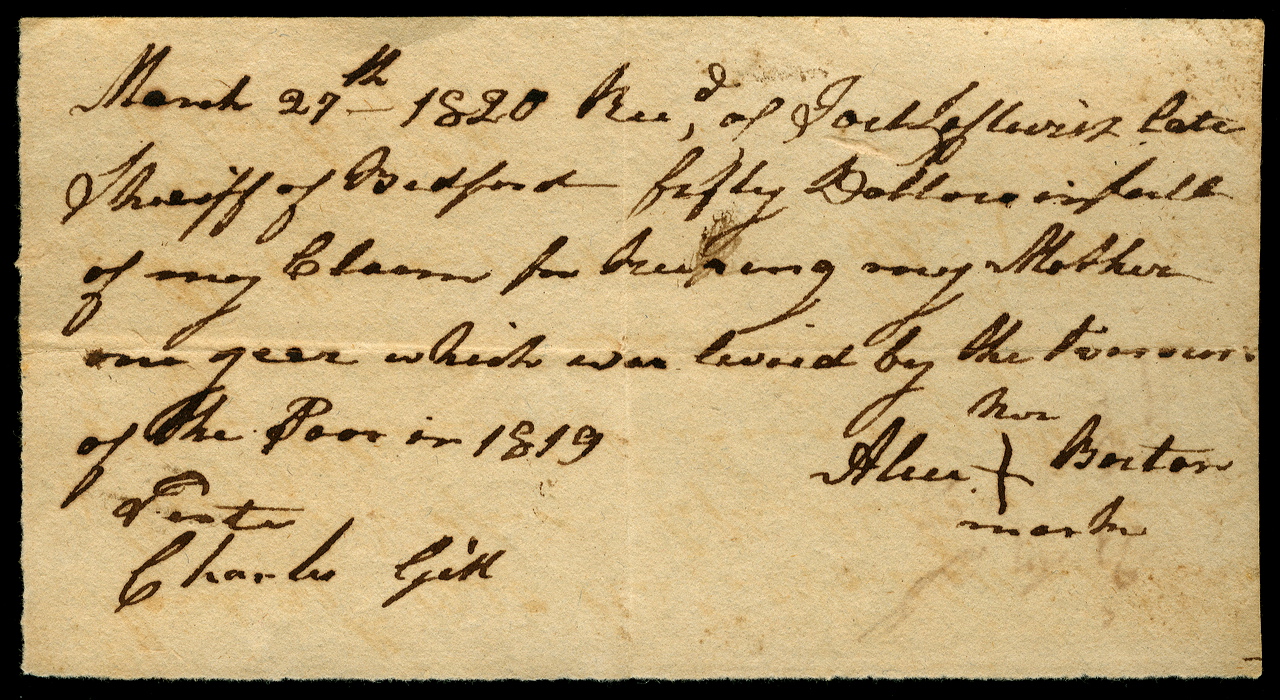 March 27th 1820 Recd, of Joel Leftwich late
Sheriff of Bedford fifty Dollars in full
of my Claim for keeping my Mother
one year which was levied by the
of the Poor in 1819
her
Alice + Borton
mark
Teste
Charles Gill